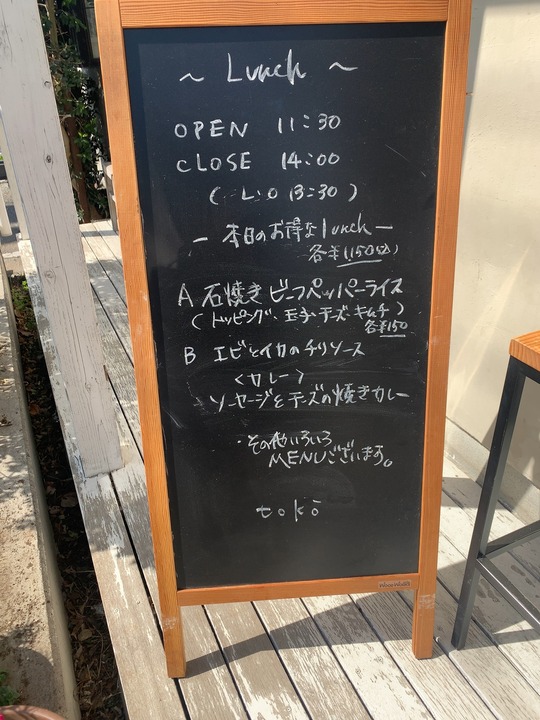 ~ Lunch ~
OPEN 11:30
CLOSE 14:00
( L.O 13:30 )
— 本日のお得なlunch —
各¥1,150(込)
A 石焼きビーフペッパーライス
(トッピング、玉子・チーズ・キムチ)
各¥150
B エビとイカのチリソース
<カレー>
ソーセージとチーズの焼きカレー
・その他いろいろ
MENUございます。
tokō